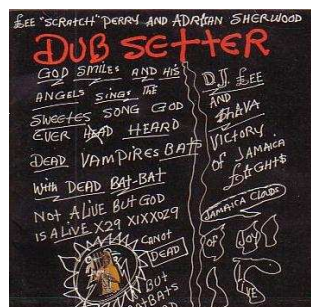 LEE "SCRATCH" PERRY AND ADRIAN SHERWOOD
DUB SETTER
GOD SMILES AND HIS
ANGELS SINGS THE
SWEETES SONG GOD
EVER HEARD
DEAD VAMPIRES BAT
WITH DEAD BAT-BAT
NOT ALIVE BUT GOD
IS ALIVE X29 XIXXOZ9
CANOT
DEAD
BUT
D.J. LEE
AND
VICTORY
OF JAMAICA
JAMAICA CLOUDS
OF JOY